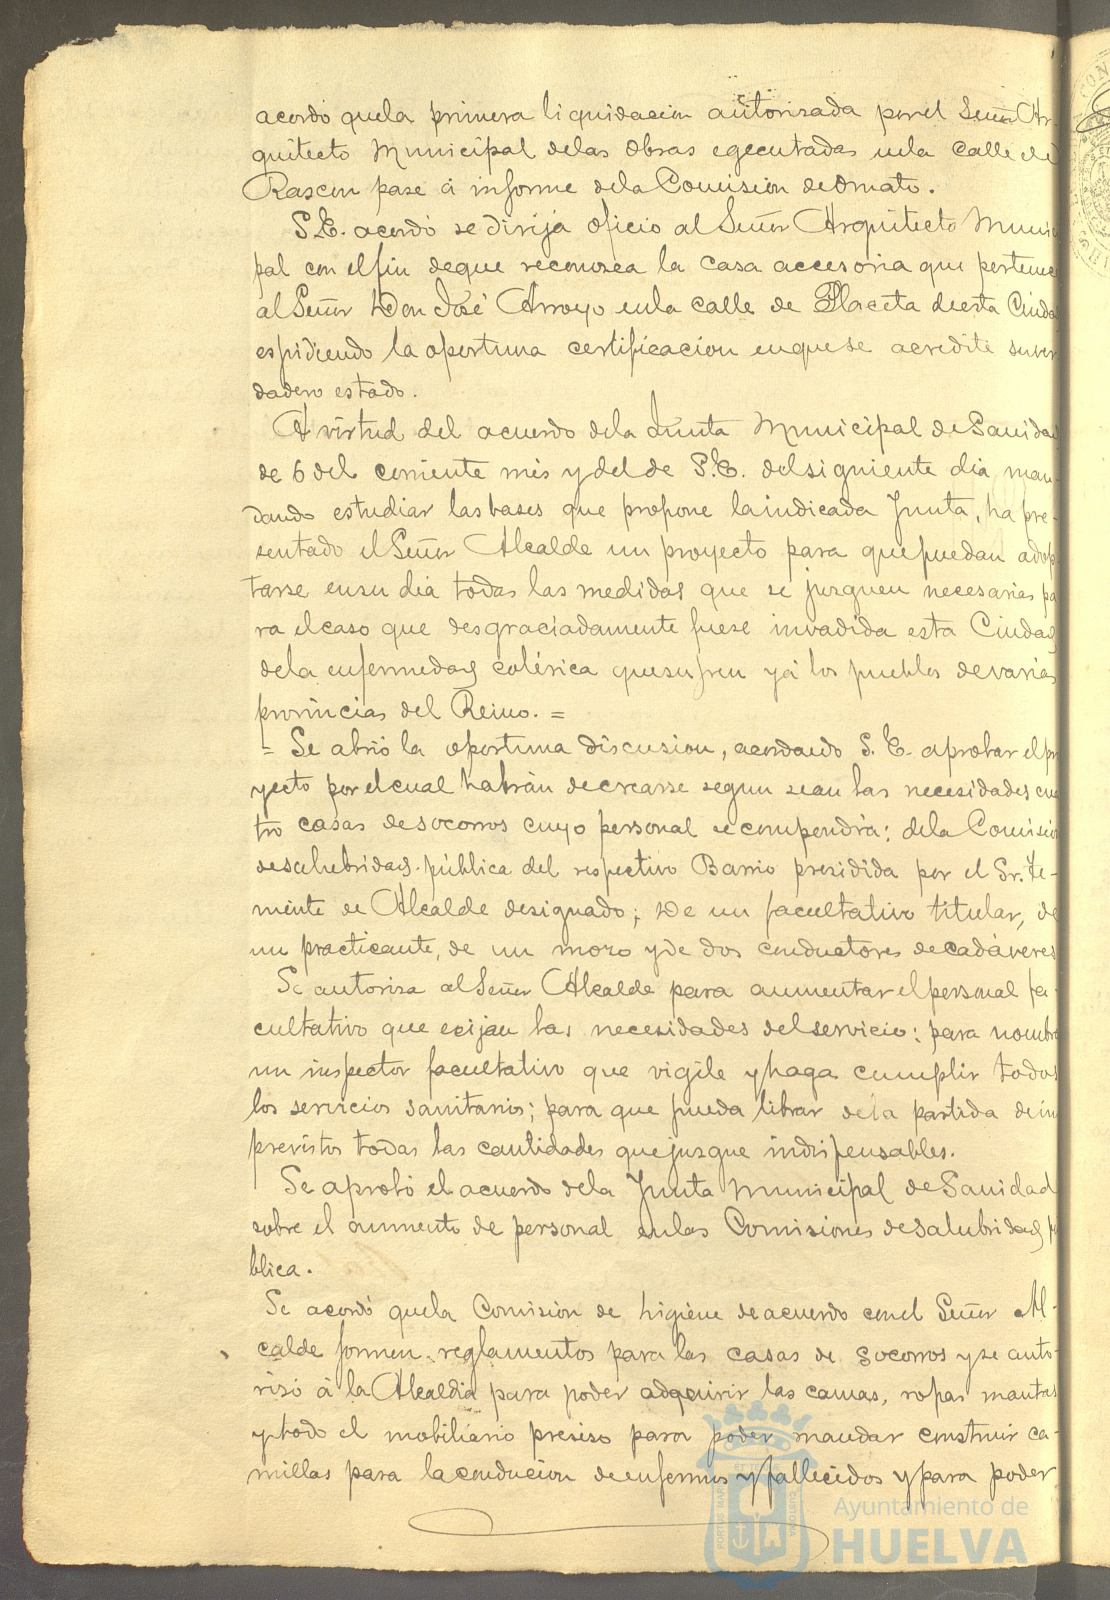 acordó quela primera liquidacion autorizada porel Señor Ar-
quitecto Municipal delas obras egecutadas enla calle de
Rascon pase á informe dela Comision deOrnato.
S.E. acordó se dirija oficio al Señor Arquitecto Munici
pal con elfin deque reconosca la casa accesoria que pertenece
al Señor Don José Arroyo enla calle de Placeta deesta Ciudad
espidiendo la oportuna certificacion enquese acredite suver
dadero estado.
A virtud del acuerdo dela Junta Municipal deSanidad
de 6 del corriente mes y del de S.E. delsiguiente dia, man-
dando estudiar lasbases que propone laindicada Junta, ha pre-
sentado elSeñor Alcalde un proyecto para quepuedan adop
tarse ensu dia todas las medidas que se jusguen necesarias pa
ra elcaso que desgraciadamente fuese invadida esta Ciudad
dela enfermedad colérica quesufren yá los pueblos devarias
provincias del Reino. =
= Se abrió la oportuna discusion, acordando S. E. aprobar elpro
yecto por elcual habrán decrearse segun sean las necesidades cua
tro casas desocorros cuyo personal se compondrá: dela Comision
desalubridad pública del respectivo Barrio presidida por el Sr. Te-
niente de Alcalde designado; De un facultativo titular, de
un practicante, de un moso yde dos conductores decadáveres
Se autorisa alSeñor Alcalde para aumentar elpersonal fa-
cultativo que ecijan las necesidades delservicio: para nombrar
un inspector facultativo que vigile yhaga cumplir todos
los servicios sanitarios; para que pueda librar dela partida deim
previstos todas las cantidades quejusgue indispensables.
Se aprobó el acuerdo dela Junta Municipal deSanidad
sobre el aumento de personal enlas Comisiones deSalubridad pú
blica.
Se acordó quela Comision de higiene deacuerdo conel Señor Al-
calde formen reglamentos para las casas de Socorros yse auto-
risó á la Alcaldia para poder adquirir las camas, ropas mantas
ytodo el mobiliario presiso para poder mandar construir ca-
millas para laconducion deenfermos yfallecidos ypara poder
Ayuntamiento de
HUELVA